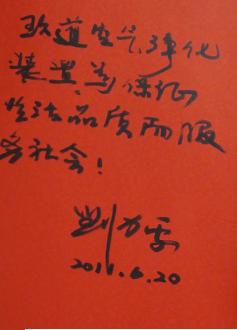 道空气净化
装置,为保证
生活品质而服
务社会!
2011.6.20